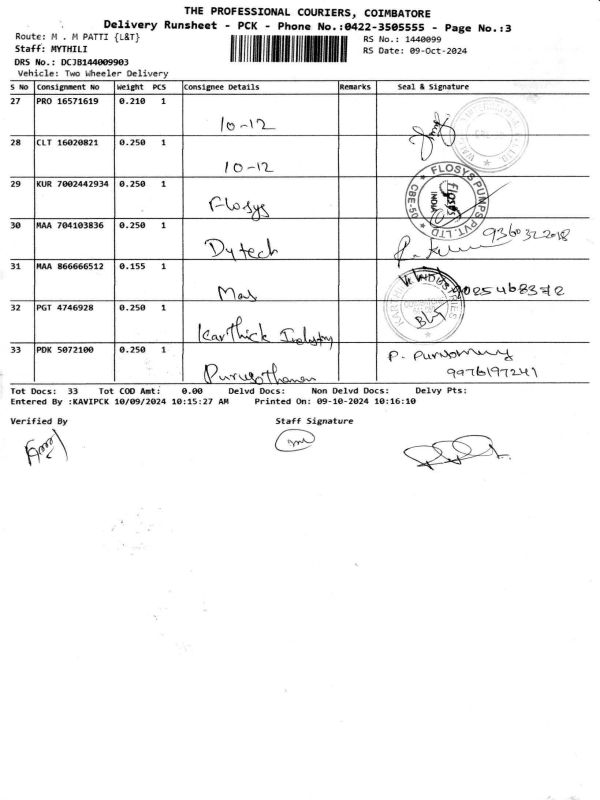 THE PROFESSIONAL COURIERS, COIMBATORE
Delivery Runsheet - PCK - Phone No.:0422-3505555 - Page No.:3
Route: M . M PATTI {L&T} RS No.: 1440099
Staff: MYTHILI RS Date: 09-Oct-2024
DRS No.: DCJB144009903
Vehicle: Two Wheeler Delivery
S No Consignment No Weight PCS Consignee Details Remarks Seal & Signature
27 PRO 16571619 0.210 1 10-12
28 CLT 16020821 0.250 1 10-12
29 KUR 7002442934 0.250 1 Flosys FLOSYS PUMPS PVT. LTD CBE-05 FLOSYS INDIA
30 MAA 704103836 0.250 1 Dytech
31 MAA 866666512 0.155 1 Mas 9025468372
32 PGT 4746928 0.250 1 Karthick Industry
33 PDK 5072100 0.250 1 Purusothaman 9976197241
Tot Docs: 33 Tot COD Amt: 0.00 Delvd Docs: Non Delvd Docs: Delvy Pts:
Entered By :KAVIPCK 10/09/2024 10:15:27 AM Printed On: 09-10-2024 10:16:10
Verified By Staff Signature